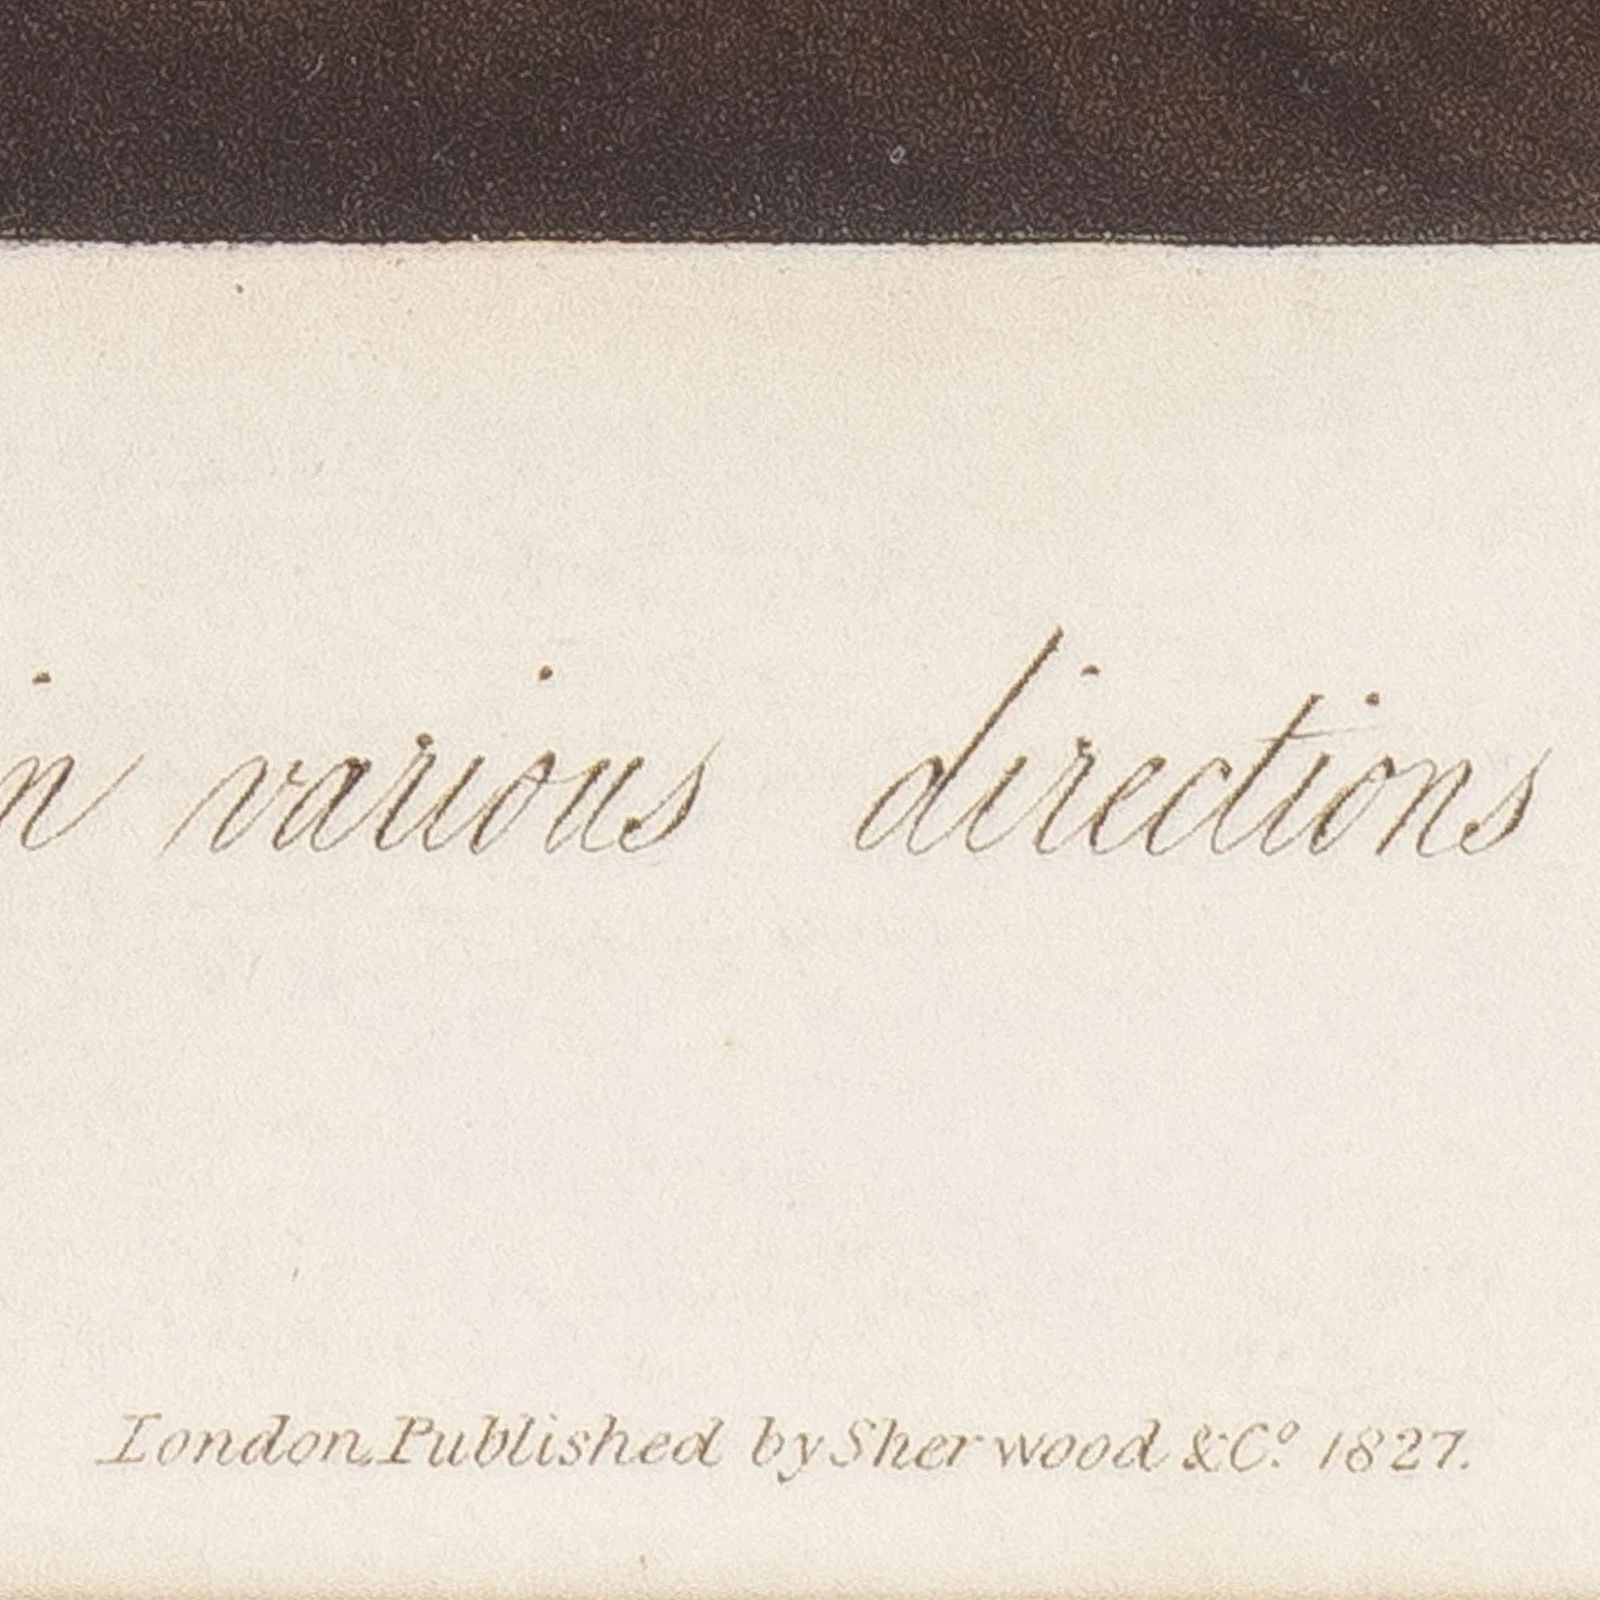 in various directions
London, Published by Sherwood & Co. 1827.